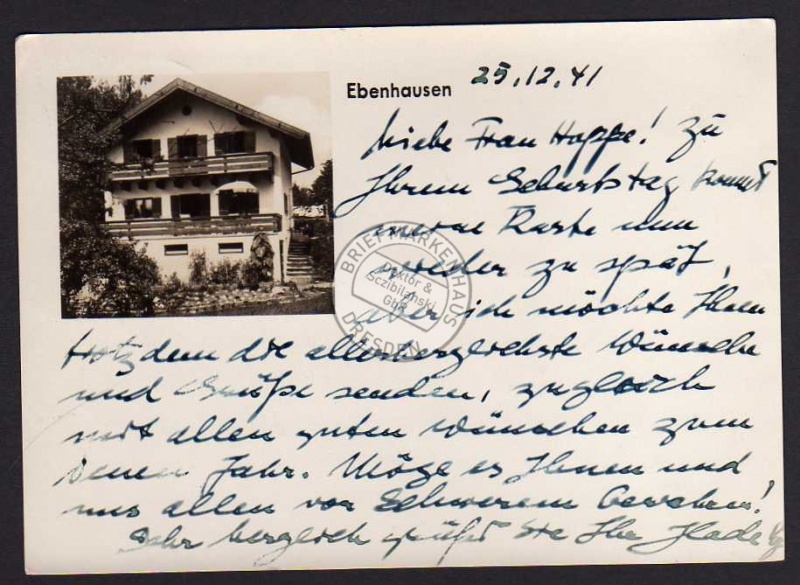 Ebenhausen 25.12.41
Liebe Frau Hoppe! Zu
Ihrem Geburtstag kommt
meine Karte nun
wieder zu spät,
aber ich möchte Ihnen
trotzdem die allerherzlichste Wünsche
und Grüße senden, zugleich
mit allen guten Wünschen zum
neuen Jahr. Möge es Ihnen und
uns allen vor Schwerem bewahren!
Sehr herzlich grüßt Sie Ihr
BRIEFMARKENHAUS
Dextor &
Sczibilanski
GbR
DRESDEN